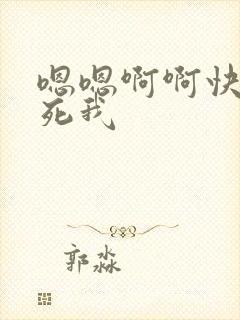 嗯嗯啊啊快
死我
郭淼